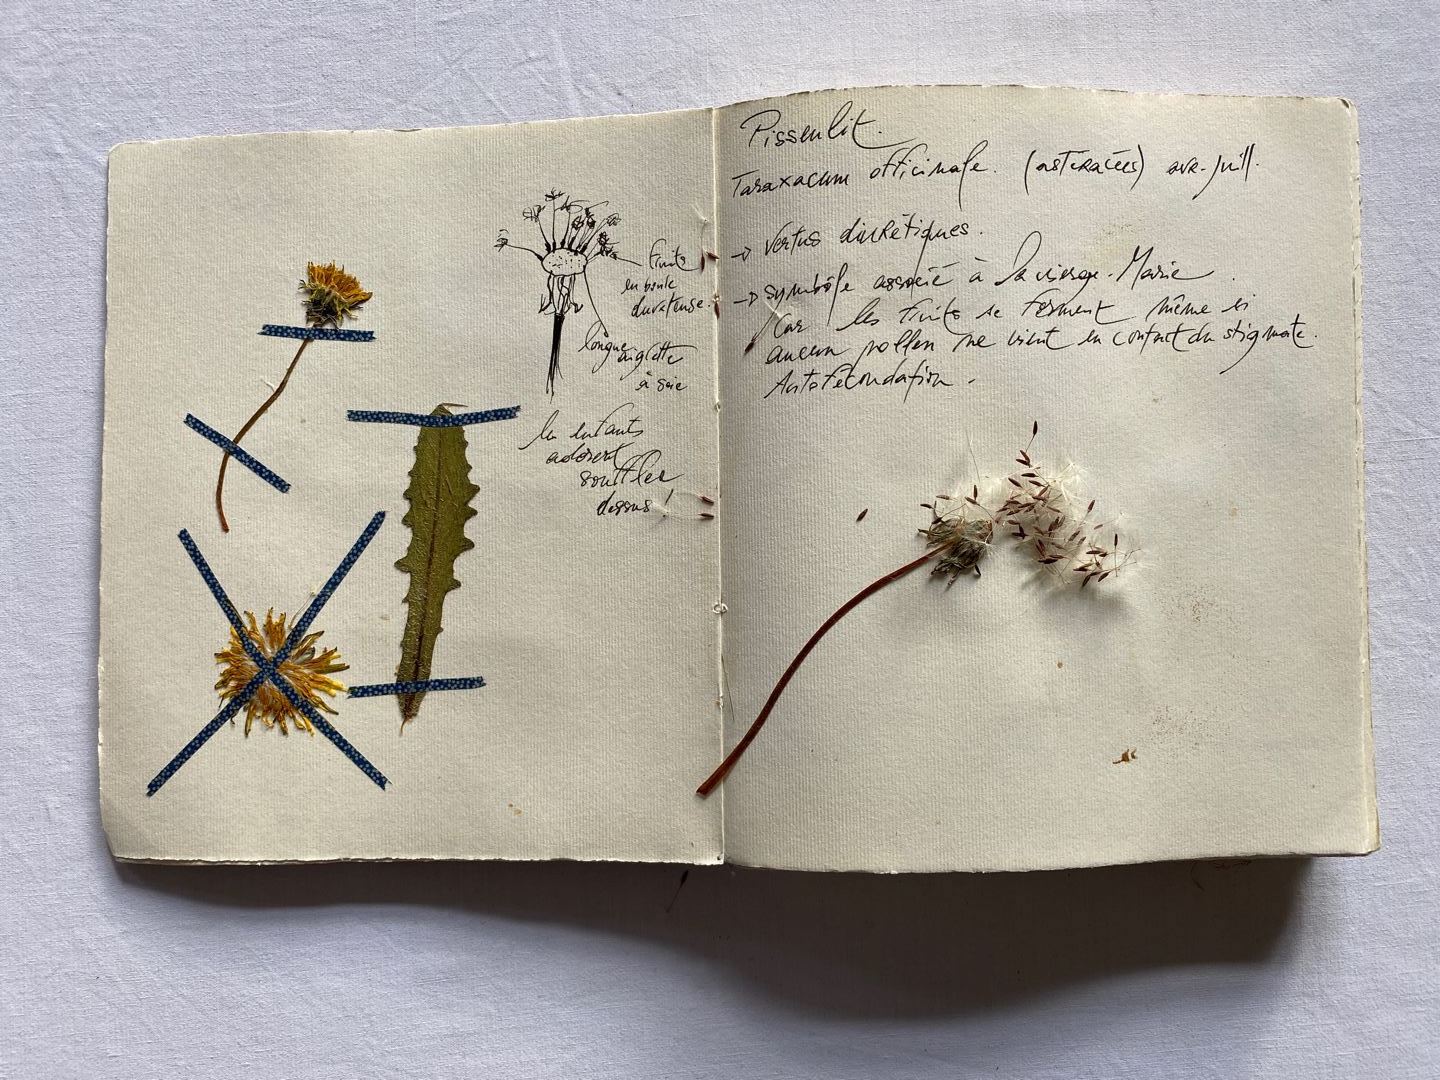 fruits
en boule
duveteuse.
longue
aiglette
à soie
les enfants
adorent
souffler
dessus !
Pissenlit.
Taraxacum officinale. (astéracées) avr-juill.
→ Vertus diurétiques.
→ symbôle associé à la vierge-Marie.
Car les fruits se forment même si
aucun pollen ne vient en contact du stigmate.
Autofécondation.